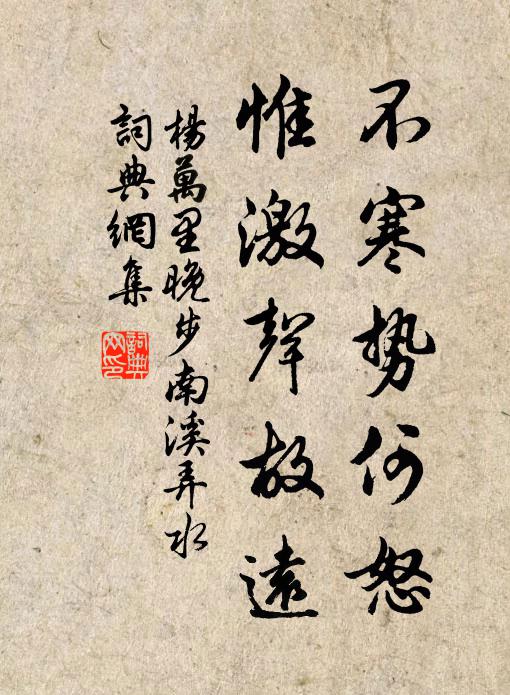 不寒勢何怒
惟激聲故遠
楊萬里晚步南溪弄水
詞典網集
詞典
网印